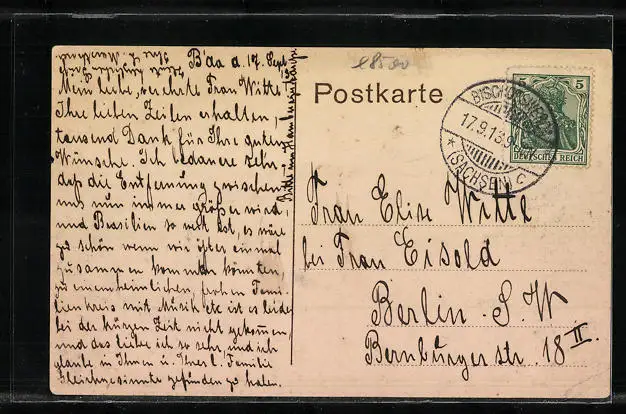 B'da d. 17. Sept.
Mein liebe, verehrte Frau Witte!
Ihre lieben Zeilen erhalten,
tausend Dank für Ihre guten
Wünsche. Ich bedauere sehr,
daß die Entfernung zwischen
uns nun immer größer wird,
und Brasilien so weit ist, es wäre
zu schön wenn wir öfter einmal
zusammen kommen könnten,
zu einem heimlichen, frohen Fami-
lienkreis mit Musik etc ist es leider
bei der kurzen Zeit nicht gekommen,
und das liebe ich so sehr, und ich
glaube in Ihnen u. Ihrer l. Familie
Gleichgesinnte gefunden zu haben.
Postkarte
BISCHOFSWERDA
17.9.13.9
* (SACHSEN) c
5 5
DEUTSCHES REICH
Frau Elise Witte
bei Frau Eisold
Berlin. S. W
Bernburgerstr. 18 II.